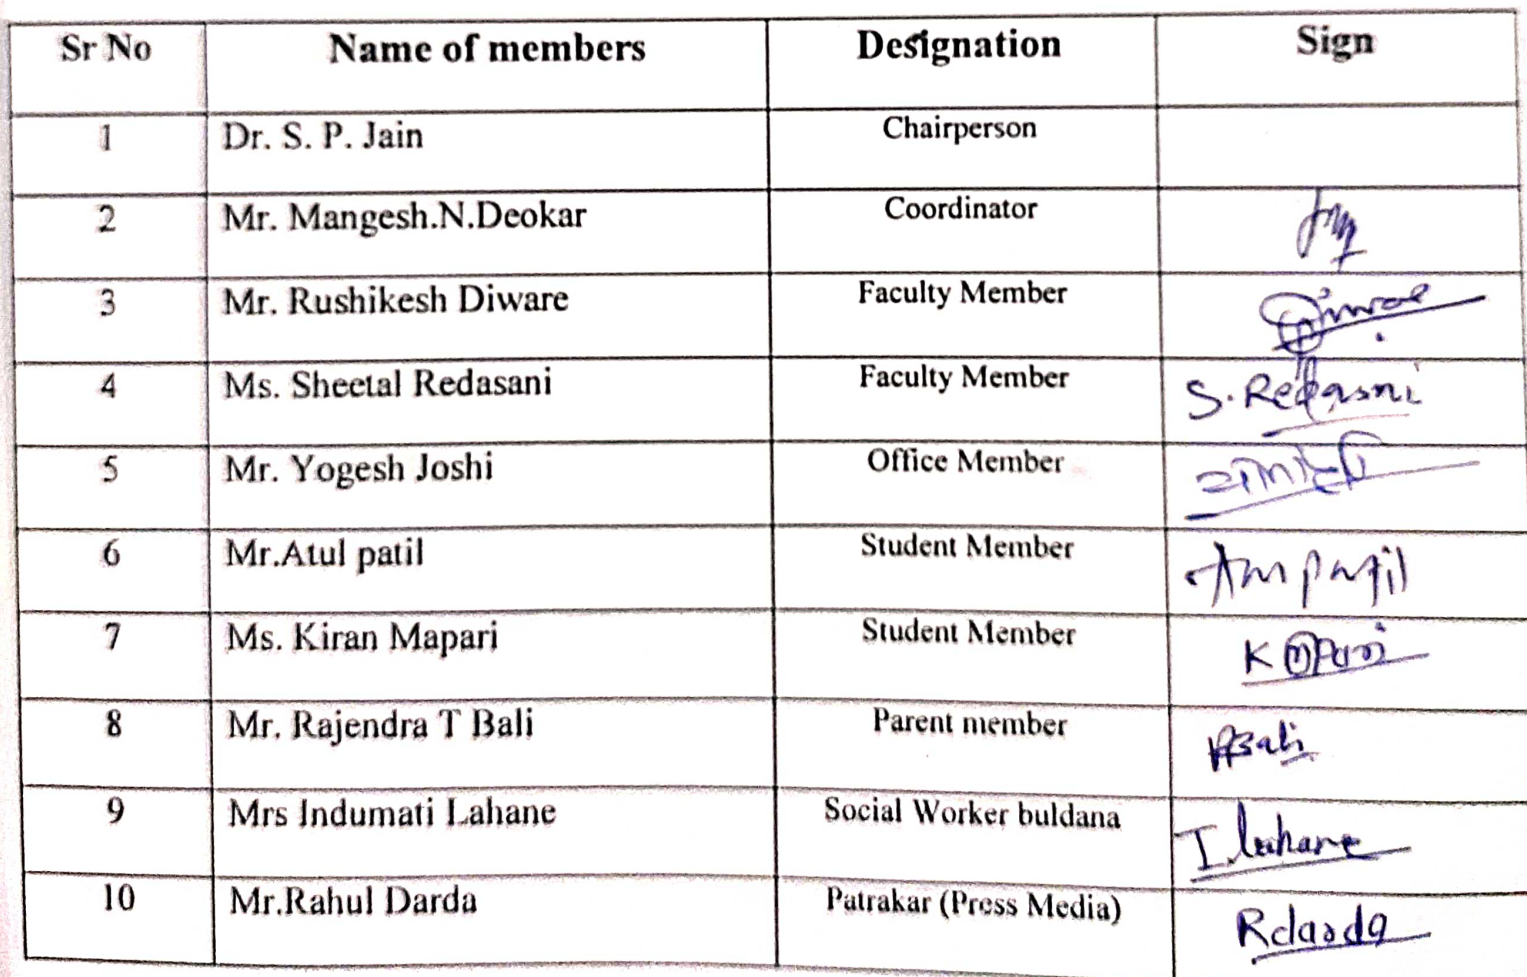 Sr No Name of members Designation Sign
1 Dr. S. P. Jain Chairperson
2 Mr. Mangesh.N.Deokar Coordinator
3 Mr. Rushikesh Diware Faculty Member Diware
4 Ms. Sheetal Redasani Faculty Member S. Redasani
5 Mr. Yogesh Joshi Office Member
6 Mr.Atul patil Student Member patil
7 Ms. Kiran Mapari Student Member K Mapari
8 Mr. Rajendra T Bali Parent member RBali
9 Mrs Indumati Lahane Social Worker buldana I. Lahane
10 Mr.Rahul Darda Patrakar (Press Media) Rdarda